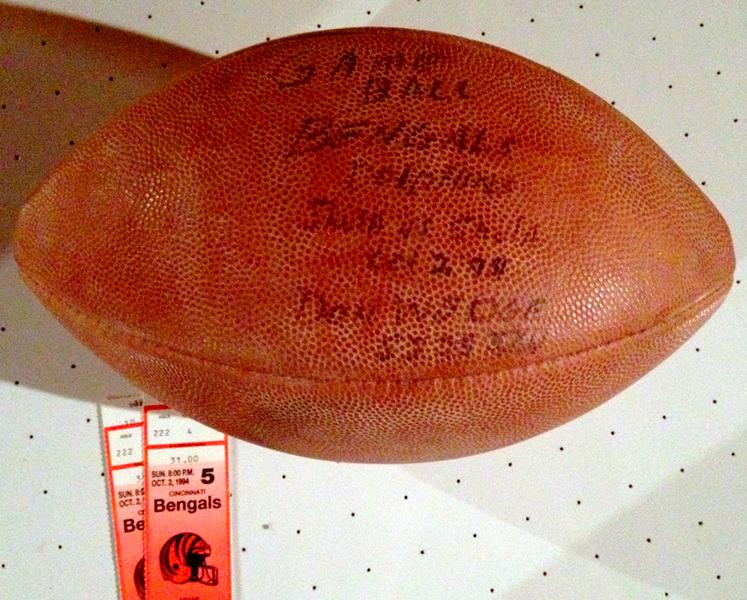 GAME
BALL
BENGALS
Dolphins
Shula vs Shula
Oct 2, 94
222
222 4
31.00
SUN. 8:00 P.M.
OCT. 2, 1994
5
CINCINNATI
Bengals
SUN. 8:0
OCT. 2,
Be